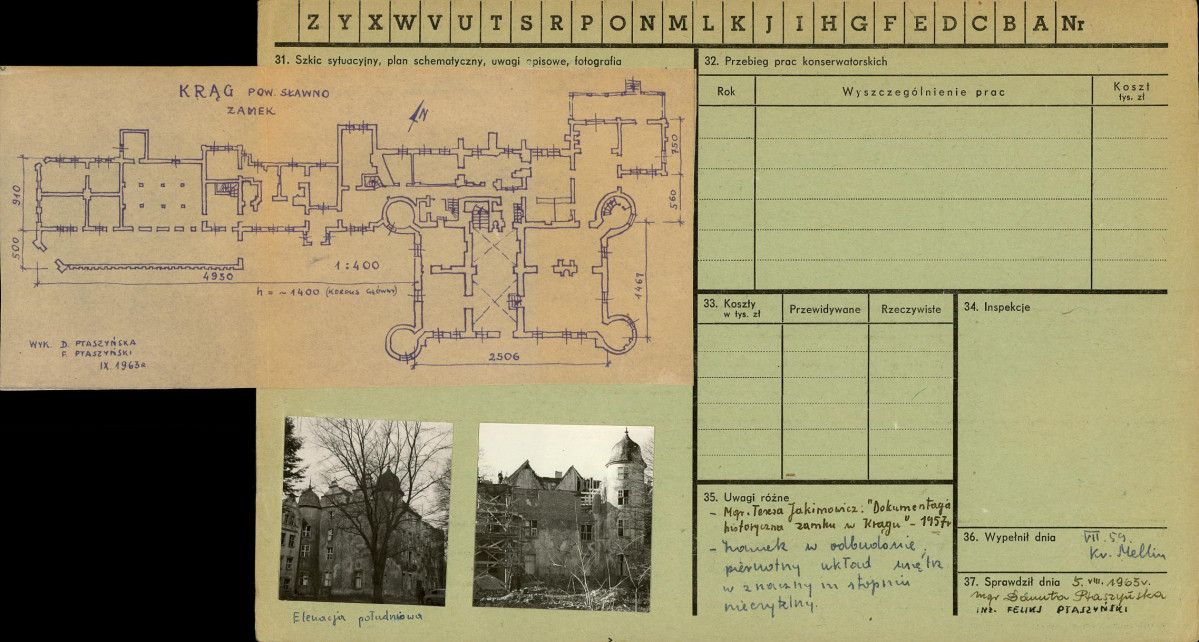 Z Y X W V U T S R P O N M L K J I H G F E D C B A Nr
31. Szkic sytuacyjny, plan schematyczny, uwagi opisowe, fotografia
KRĄG POW. SŁAWNO
ZAMEK
N
910
500
4930
1:400
h = ~1400 (KORPUS GŁÓWNY)
750
560
1467
2506
WYK. D. PTASZYŃSKA
F. PTASZYŃSKI
IX 1963 r.
Elewacja południowa
32. Przebieg prac konserwatorskich
Rok
Wyszczególnienie prac
Koszt
tys. zł
33. Koszty
w tys. zł
Przewidywane
Rzeczywiste
34. Inspekcje
35. Uwagi różne
- Mgr. Teresa Jakimowicz: "Dokumentacja
historyczna zamku w Krągu" - 1957r
- Zamek w odbudowie,
pierwotny układ wnętrz
w znacznym stopniu
nieczytelny.
36. Wypełnił dnia VII. 59.
Kr. Mellin
37. Sprawdził dnia 5. VIII. 1963r.
mgr Danuta Ptaszyńska
inż. FELIKS PTASZYŃSKI